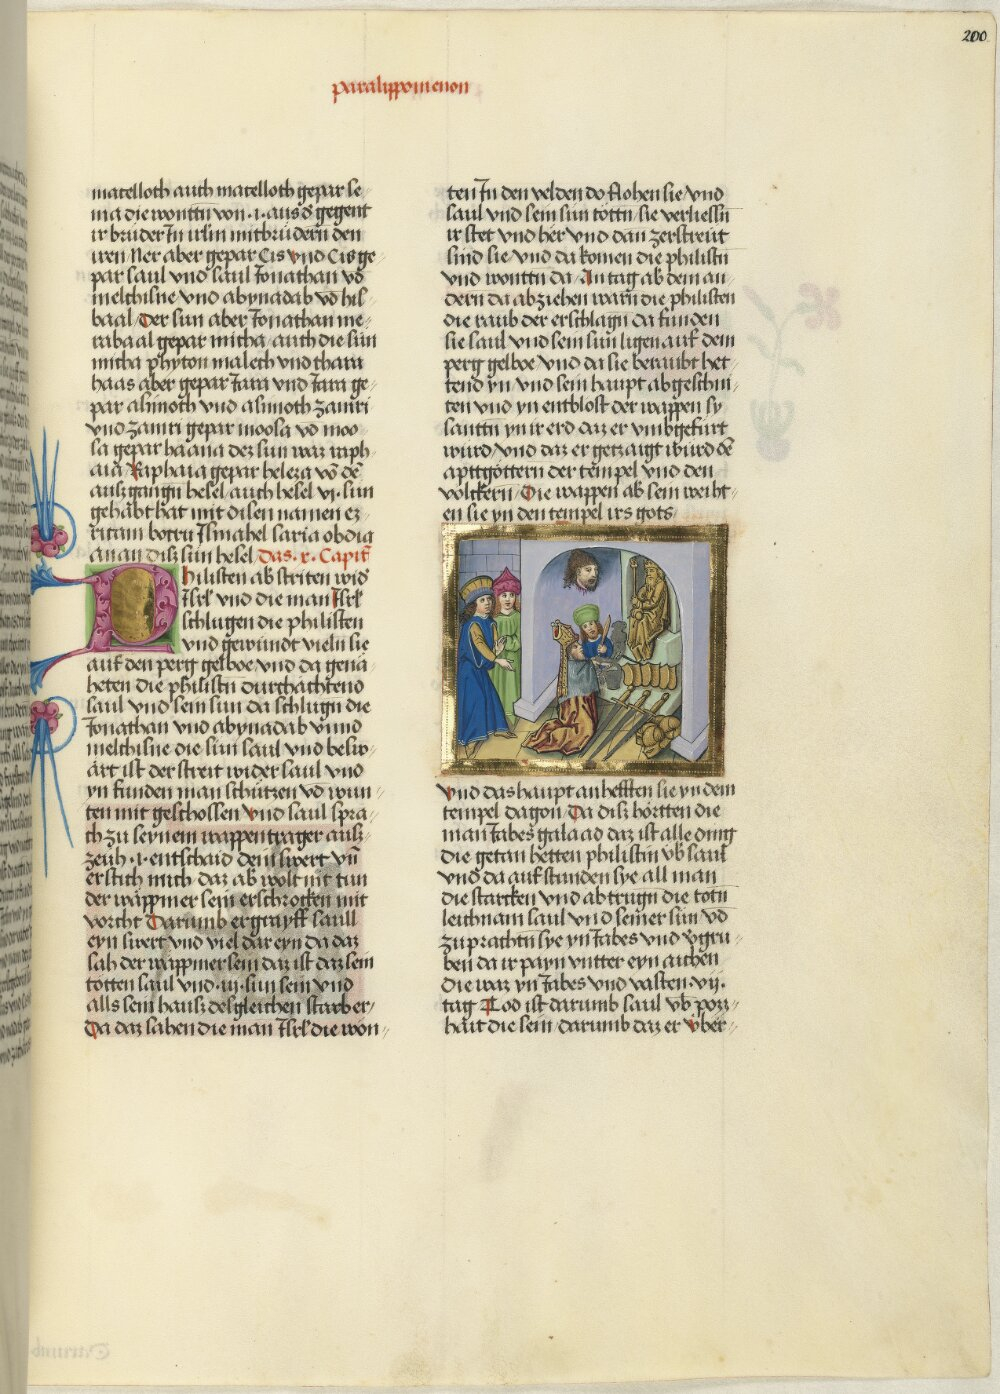 200
paralippomenon
matelloth auch matelloth gepar se
ma die wontn von .i. aus d̄ gegent
ir bruder In irlm mitbrudern den
iren Ner aber gepar Cis vnd Cis ge
par saul vnd saul Jonathan vd̄
melchisue vnd abynadab vd̄ his
baal Der sun aber Jonathan me
rabaal gepar micha auch die sun
micha phyton malech vnd thara
haas aber gepar Jara vnd Jara ge
par alimoth vnd asimoth zamri
vnd zamri gepar moosa vd̄ moo
sa gepar baana dez sun waz raph
aia Raphaia gepar heleza vō dē
ausz gangn hesel auch hesel vi. sun
gehabt hat mit disen namen ez
ricam botru Ismahel saria obdia
anan disz sun hesel das .x. Capitl̄
Philisten ab striten wid̄
Isrl̄ vnd die man Isrl̄
schlugen die philisten
vnd gewundt vieln sie
auf den perg gelboe vnd da gena
heten die philistn durchachtend
saul vnd sein sun da schlugn die
Jonathan vnd abynadab vnnd
melchisue die sun saul vnd besw
art ist der streit wider saul vnd
yn funden man schutzen vd̄ wun
ten mit geschossen vnd saul spra
ch zu seynem wappentrager ausz
zeuh .i. entschaid dein swert vn̄
erstich mich daz ab wolt nit tun
der wappner sein erschrocken mit
vorcht Darumb ergrayff saull
eyn swert vnd viel dar eyn da daz
sah der wappner sein daz ist daz sein
totten saul vnd .iij. sun sein vnd
alls sein hausz desgleichen starb er
Da daz sahen die man Isrl̄ die won
ten In den velden do flohen sie vnd
saul vnd sein sun tottn sie verliessn
ir stet vnd her vnd dan zerstreut
sind sie vnd da komen die philistn
vnd wontn da An tag ab dem an
dern da abziehen warn die philisten
die raub der erschlagn da funden
sie saul vnd sein sun ligen auf dem
perg gelboe vnd da sie beraubt het
tend yn vnd sein haupt abgeschni
ten vnd yn entblost der wappen sy
santtn yn ir erd daz er vmbgefurt
wurd vnd daz er getzaigt wurd dē
apttgottern der tempel vnd den
volckern Die wappen ab sein weiht
en sie yn den tempel irs gots
vnd das haupt an hefften sie yn dem
tempel dagon Da disz hortten die
man Jabes galaad daz ist alle ding
die getan hetten philistin vb̄ saul
vnd da auf stunden sye all man
die starcken vnd abtrugn die totn
leichnam saul vnd seiner sun vd̄
zuprachtn sye yn Jabes vnd v̄gru
ben da ir payn vntter eyn aichen
die waz yn Jabes vnd vasten .vij.
tag Tod ist darumb saul vb̄ poz
hait die sein darumb daz er vber